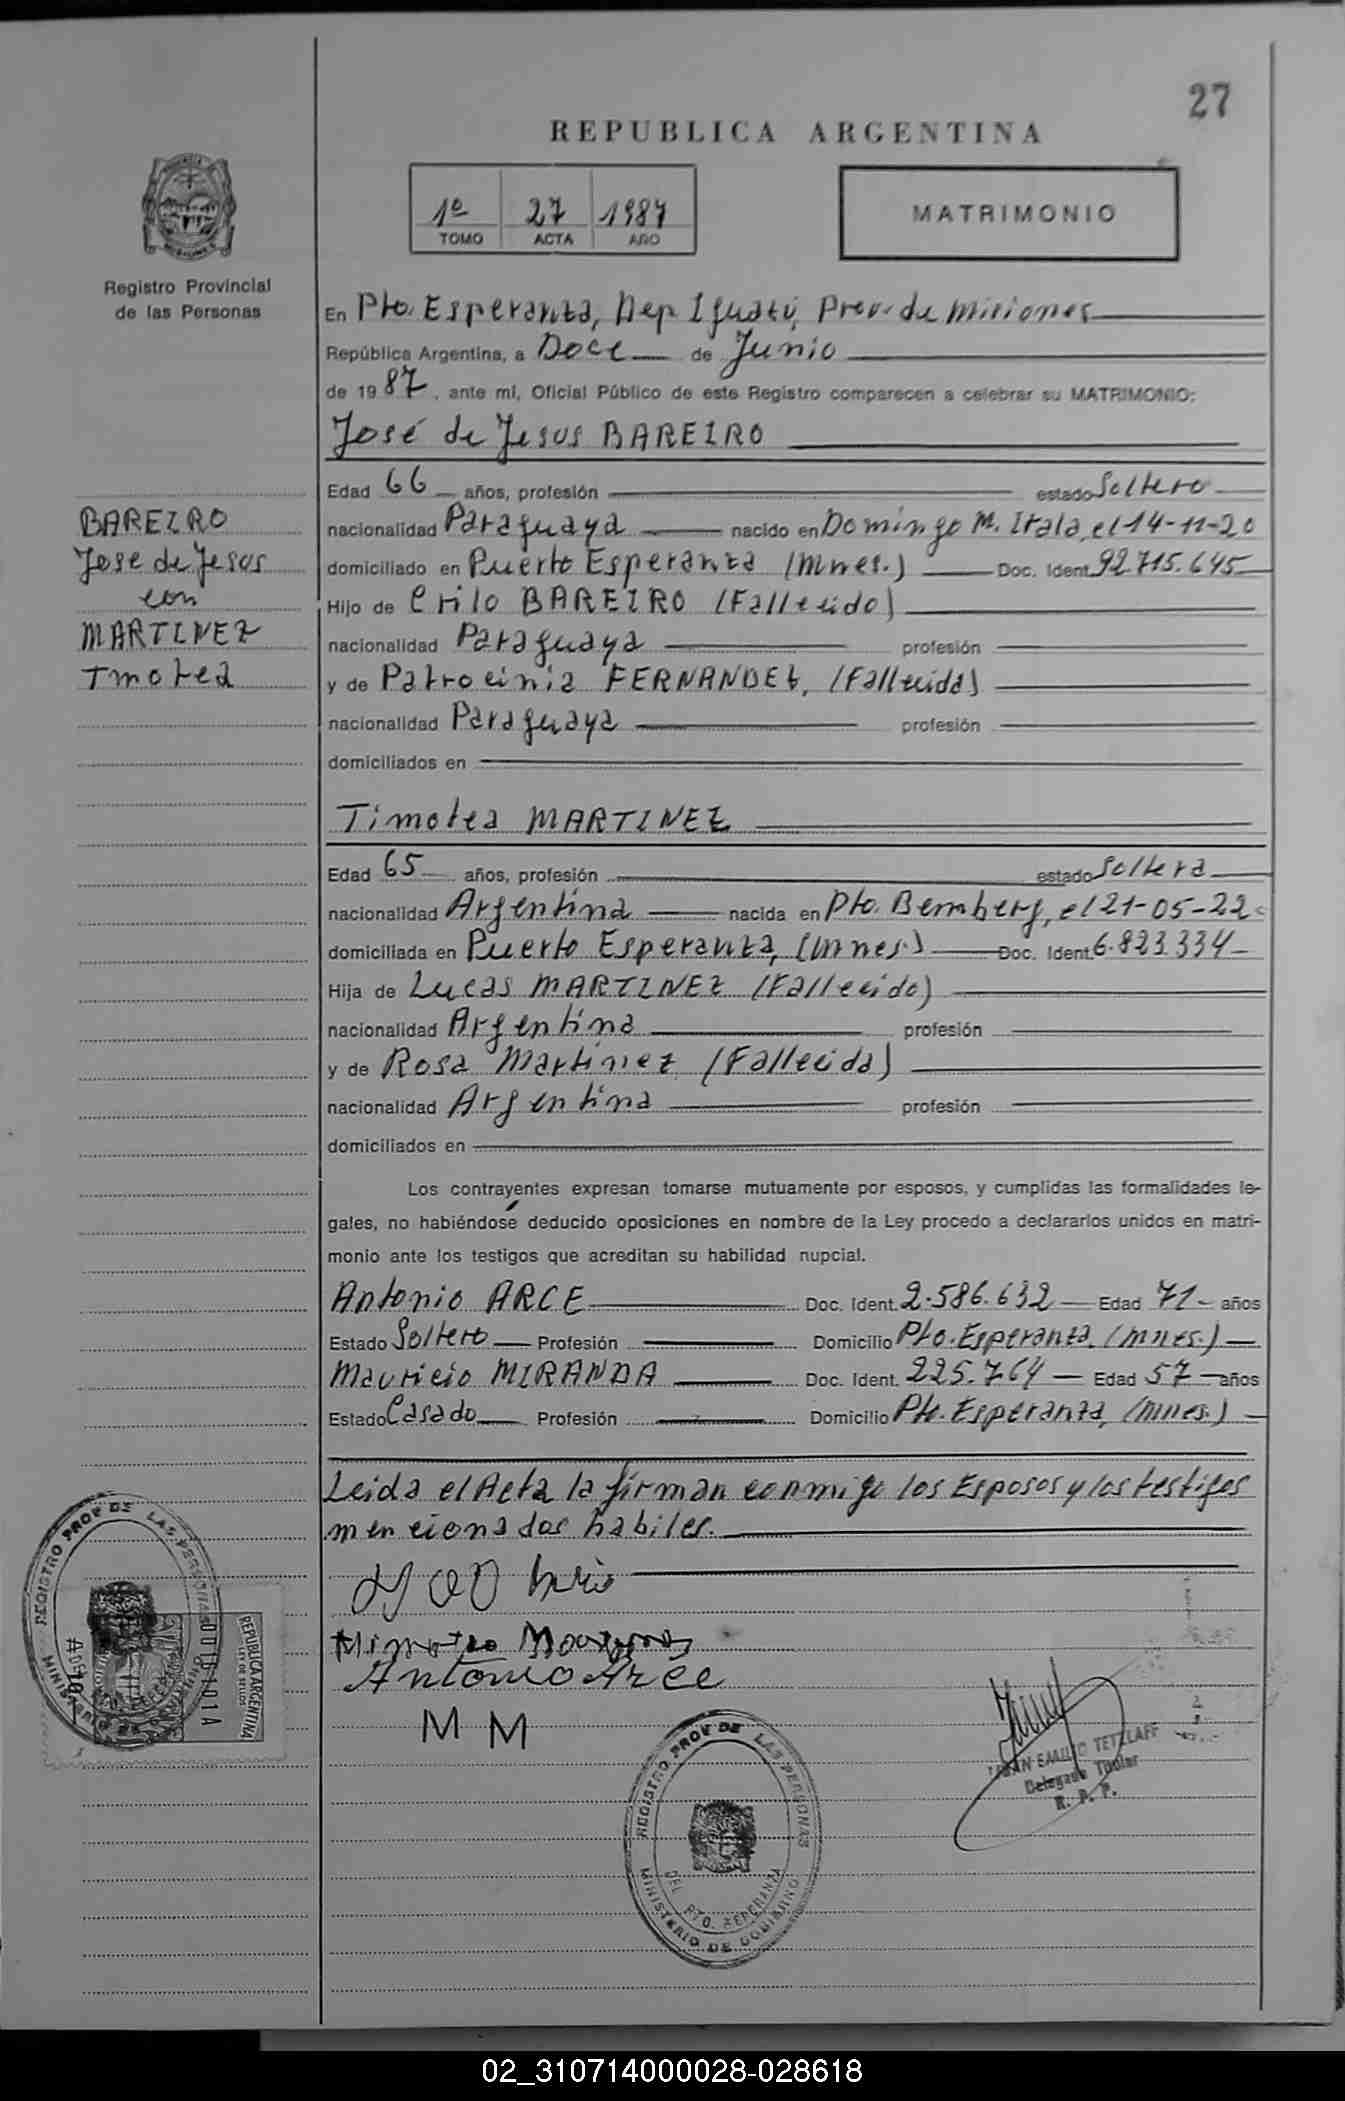 27
REPUBLICA ARGENTINA
1º 27 1987
TOMO ACTA AÑO
MATRIMONIO
Registro Provincial
de las Personas
En Pto. Esperanza, Dep Iguazú, Prov. de Misiones
República Argentina, a Doce de Junio
de 1987, ante mi, Oficial Público de este Registro comparecen a celebrar su MATRIMONIO:
José de Jesus BAREIRO
Edad 66 años, profesión estado Soltero
nacionalidad Paraguaya nacido en Domingo M. Irala, el 14-11-20
domiciliado en Puerto Esperanza (Mnes.) Doc. Ident. 92.715.645
Hijo de Crilo BAREIRO (Fallecido)
nacionalidad Paraguaya profesión
y de Patrocinia FERNANDEZ, (Fallecida)
nacionalidad Paraguaya profesión
domiciliados en
BAREIRO
Jose de Jesus
con
MARTINEZ
Tmotea
Timotea MARTINEZ
Edad 65 años, profesión estado Soltera
nacionalidad Argentina nacida en Pto. Bemberg, el 21-05-22
domiciliada en Puerto Esperanza, (Mnes.) Doc. Ident. 6.823.334
Hija de Lucas MARTINEZ (Fallecido)
nacionalidad Argentina profesión
y de Rosa Martinez (Fallecida)
nacionalidad Argentina profesión
domiciliados en
Los contrayentes expresan tomarse mutuamente por esposos, y cumplidas las formalidades le-
gales, no habiéndose deducido oposiciones en nombre de la Ley procedo a declararlos unidos en matri-
monio ante los testigos que acreditan su habilidad nupcial.
Antonio ARCE Doc. Ident. 2.586.632 Edad 71 años
Estado Soltero Profesión Domicilio Pto. Esperanza, (Mnes.)
Mauricio MIRANDA Doc. Ident. 225.764 Edad 57 años
Estado Casado Profesión Domicilio Pto. Esperanza, (Mnes.)
Leida el Acta la firman conmigo los Esposos y los testigos
mencionados habiles.
Antonio Arce
M M
REGISTRO PROV DE LAS PERSONAS
MINISTERIO DE GOBIERNO
REPUBLICA ARGENTINA
LEY DE SELLOS
REGISTRO PROV DE LAS PERSONAS
DEL PTO. ESPERANZA
MINISTERIO DE GOBIERNO
EMILIO TETZLAFF
Delegado Titular
R. P. P.
02_310714000028-028618